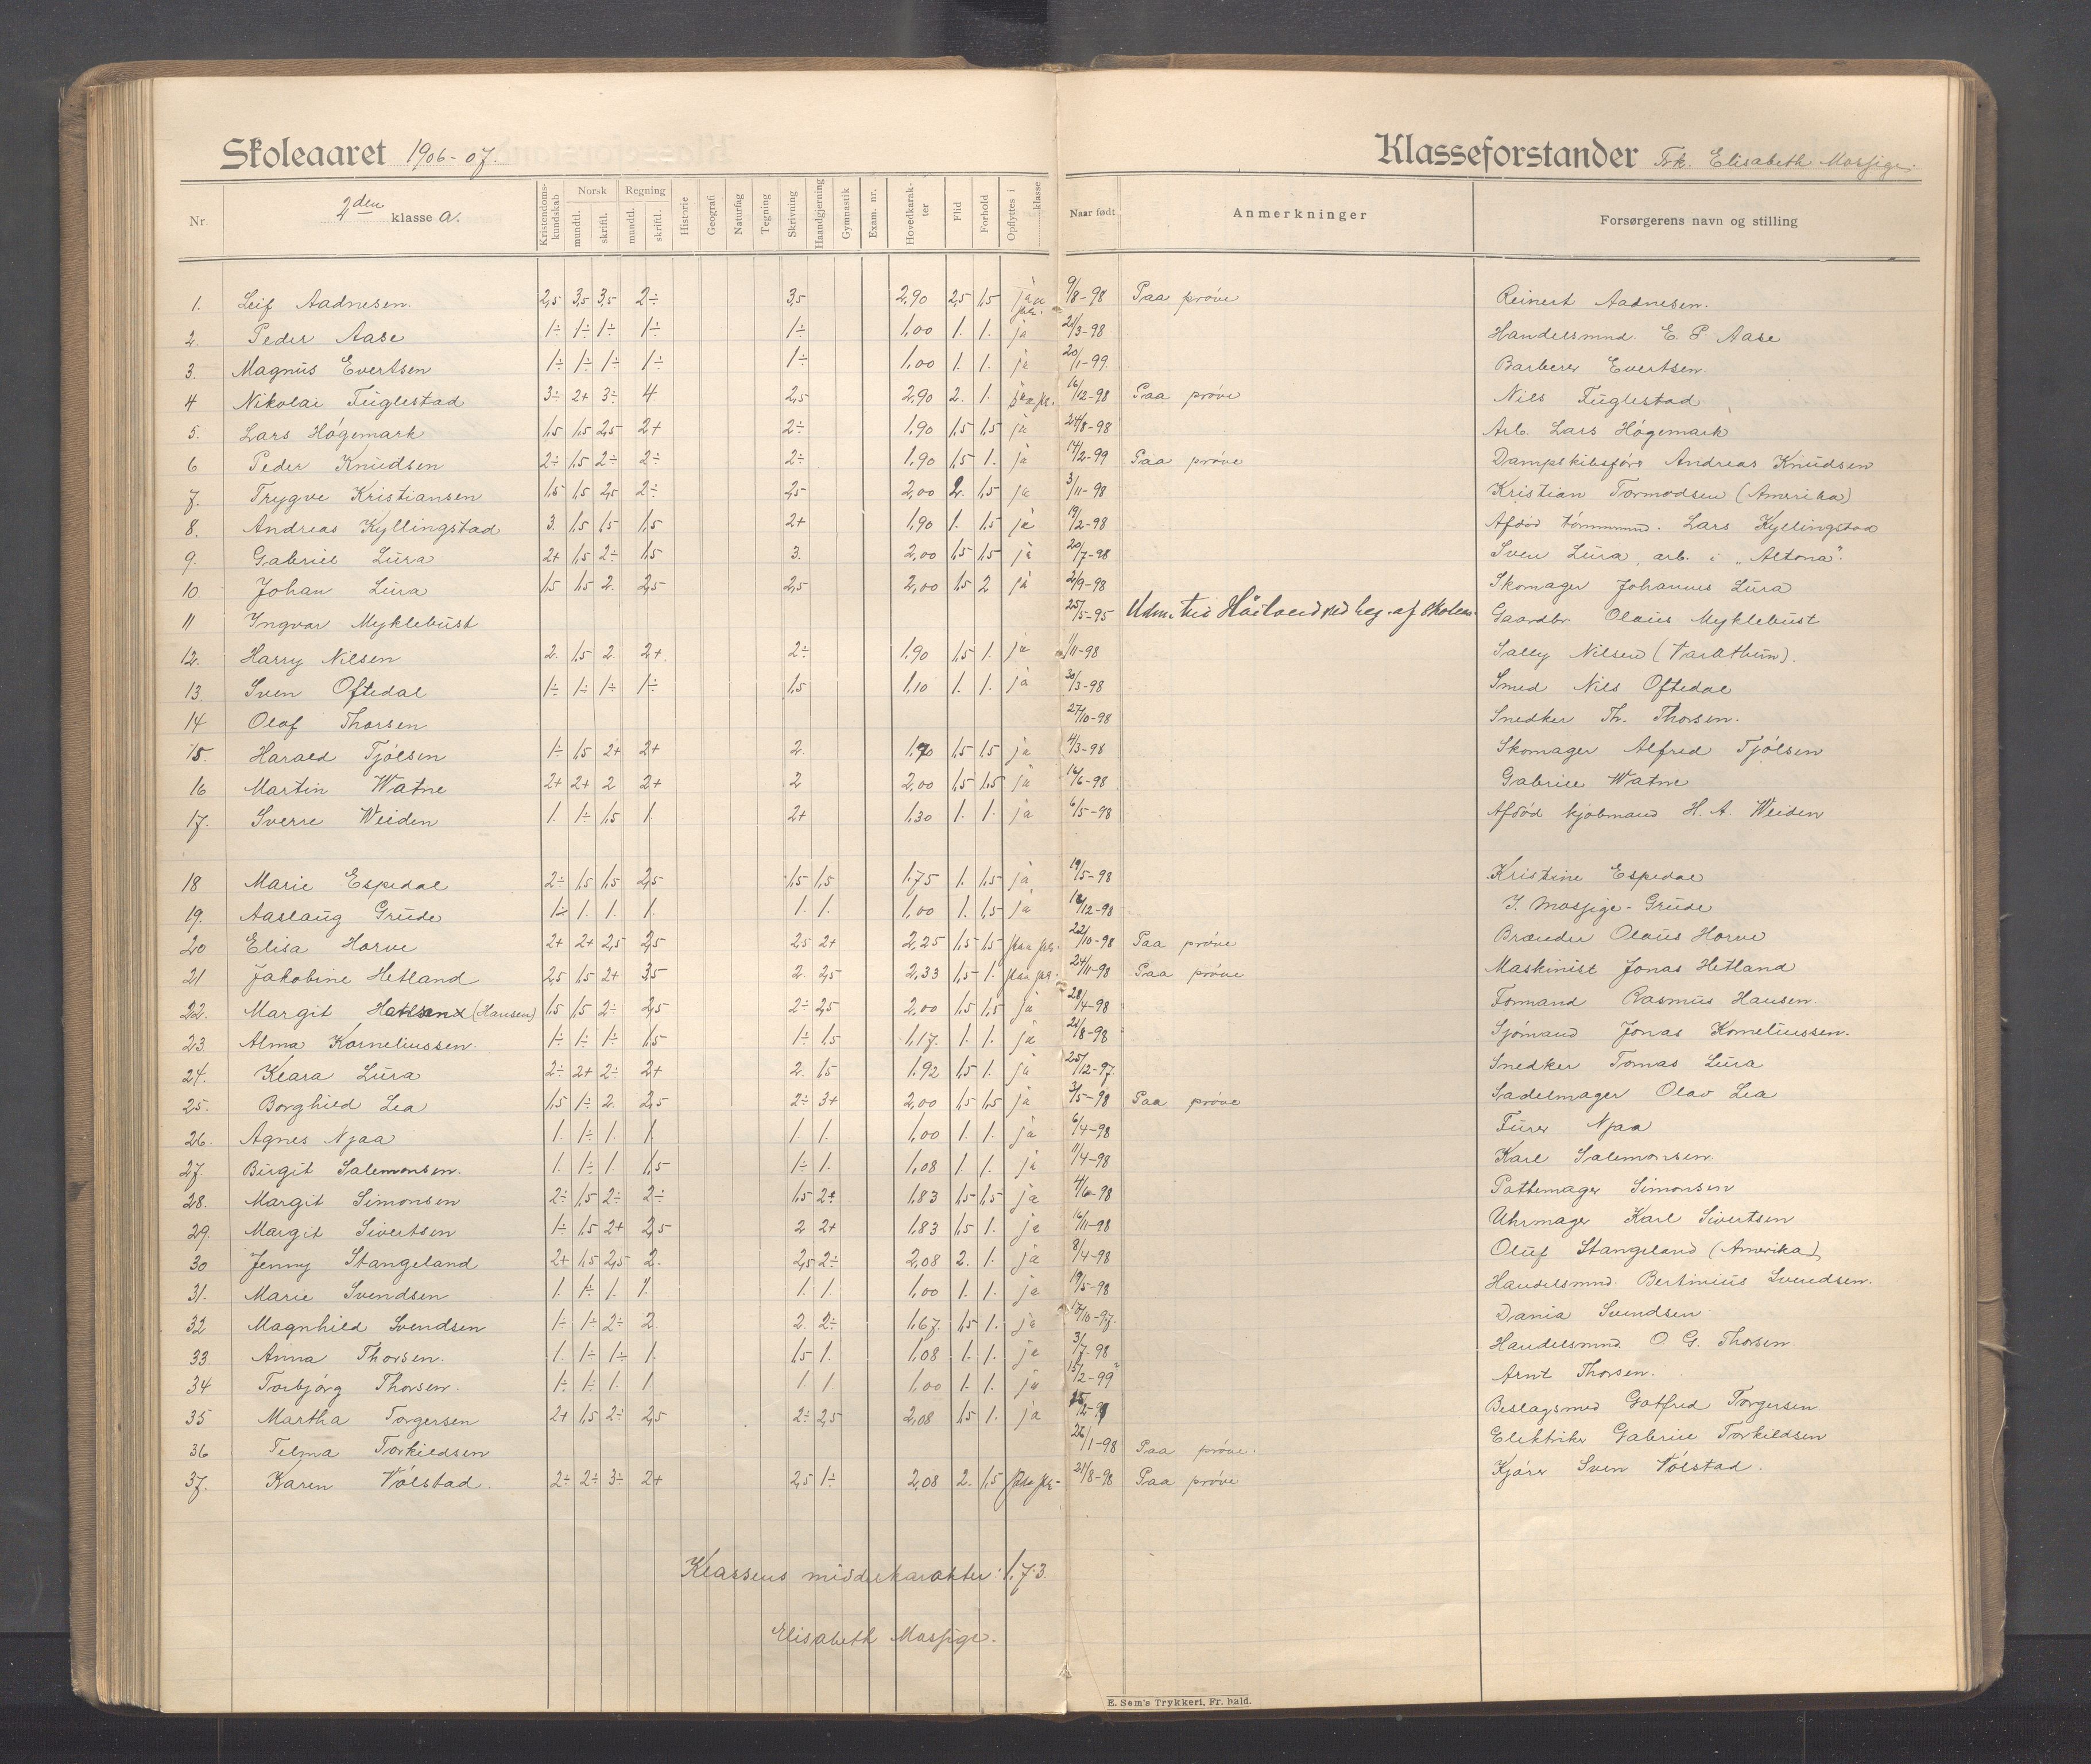 Skoleaaret 1906-07.
Klasseforstander Frk. Elisabeth Mossige.
Nr.
2den klasse a.
Kristendoms-kundskab
Norsk mundtl. skriftl.
Regning mundtl. skriftl.
Historie
Geografi
Naturfag
Tegning
Skrivning
Haandgjerning
Gymnastik
Exam. nr.
Hovedkarak-ter
Flid
Forhold
Opflyttes i klasse
Naar født
Anmerkninger
Forsørgerens navn og stilling
1. Leif Aadnesen. 2,5 3,5 3,5 2÷ 3,5 2,90 2,5 1,5 9/8-98 Paa prøve Reinert Aadnesen.
2. Peder Aase 1÷ 1÷ 1÷ 1÷ 1÷ 1,00 1. 1. ja 21/3-98 Handelsmnd. E. P. Aase
3. Magnus Evertsen 1÷ 1÷ 1÷ 1÷ 1÷ 1,00 1. 1. ja 20/1-99. Barberer Evertsen.
4 Nikolai Fuglestad 3÷ 2+ 3÷ 4 2,5 2,90 2. 1. 16/12-98 Paa prøve Nils Fuglestad
5. Lars Høgemark 1,5 1,5 2,5 2+ 2÷ 1,90 1,5 1,5 ja 24/8-98 Arb. Lars Høgemark
6 Peder Knudsen 2÷ 1,5 2÷ 2÷ 2÷ 1,90 1,5 1. ja 14/2-99 Paa prøve Dampskibsfører Andreas Knudsen
7. Trygve Kristiansen 1,5 1,5 2,5 2÷ 2,5 2,00 2. 1,5 ja 3/11-98 Kristian Tormodsen (Amerika)
8. Andreas Kyllingstad 3. 1,5 1,5 1,5 2+ 1,90 1. 1,5 ja 19/2-98 Afdød Lars Kyllingstad
9. Gabriel Lura 2+ 1,5 2÷ 1,5 3. 2,00 1,5 1,5 ja 20/7-98 Sven Lura, arb. i „Altona".
10. Johan Lura 1,5 1,5 2. 2,5 2,5 2,00 1,5 2 ja 2/9-98 Skomager Johannes Lura
11 Ingvar Myklebust 25/5-95 Udm. til Høiland ved beg. af skolen. Gaardbr. Olaus Myklebust
12. Harry Nilsen 2. 1,5 2. 2+. 2÷ 1,90 1,5 1. ja 1/11-98 Sally Nilsen (Varathun).
13. Sven Oftedal 1÷ 1÷ 1÷ 1÷ 1,5 1,10 1. 1. ja 30/3-98 Smed Nils Oftedal
14 Olaf Thorsen 27/10-98 Snedker Th. Thorsen.
15. Harald Tjølsen 1÷ 1,5 2+ 2+ 2 1,70 1,5 1,5 ja 4/3-98 Skomager Alfred Tjølsen
16 Martin Watne 2+ 2+ 2 2+ 2 2,00 1,5 1,5 ja 16/6-98 Gabriel Watne
17. Sverre Weiden 1. 1÷ 1,5 1. 2+ 1,30 1. 1. ja 6/5-98 Afdød kjøbmand H. A. Weiden
18 Marie Espedal 2÷ 1,5 1,5 2,5 1,5 1,5 1,75 1. 1,5 ja 19/5-98 Kristine Espedal
19. Aaslaug Grude 1÷ 1. 1. 1. 1. 1. 1,00 1. 1,5 ja 18/12-98 I. Mossige-Grude
20 Elisa Horve 2+ 2+ 2,5 2,5 2,5 2+ 2,25 1,5 1,5 paa pr. 22/10-98 Paa prøve Brænder Olaus Horve
21 Jakobine Hetland 2,5 1,5 2+ 3,5 2. 2,5 2,33 1,5 1. paa pr. 24/11-98 Paa prøve Maskinist Jonas Hetland
22. Margit (Hansen) 1,5 1,5 2÷ 2,5 2÷ 2,5 2,00 1,5 1,5 ja 28/4-98 Formand Rasmus Hansen.
23. Alma Korneliussen. 1÷ 1÷ 1÷ 1,5 1÷ 1,5 1,17. 1. 1. ja 21/8-98 Sjømand Jonas Korneliussen.
24. Klara Lura 2÷ 2+ 2÷ 2+ 2. 1,5 1,92 1,5 1. ja 25/12-97. Snedker Tomas Lura
25. Borghild Lea 1,5 1÷ 2. 2,5 2÷ 3+ 2,00 1,5 1,5 ja 3/5-98 Paa prøve Sadelmager Olav Lea
26. Agnes Njaa 1. 1÷ 1. 1. 1. 1. 1,00 1. 1. ja 6/4-98 Furer Njaa
27. Birgit Salemonsen. 1. 1÷ 1. 1,5 1÷ 1. 1,08 1. 1. ja 11/4-98 Karl Salemonsen.
28. Margit Simonsen 2÷ 1,5 2÷ 2÷ 1,5 2+ 1,83 1,5 1,5 ja 4/6-98 Pottemager Simonsen
29. Margit Sivertsen 1÷ 1,5 2+ 2,5 2 2+ 1,83 1,5 1. ja 16/11-98 Uhrmager Karl Sivertsen
30 Jenny Stangeland 2+ 1,5 2,5 2. 2,5 2÷ 2,08 2. 1. ja 8/4-98 Oluf Stangeland (Amerika)
31. Marie Svendsen 1. 1÷ 1. 1. 1. 1. 1,00 1. 1. ja 19/5-98 Handelsmnd. Bertinius Svendsen.
32 Magnhild Svendsen 1÷ 1÷ 2÷ 2 2. 2÷ 1,67. 1,5 1. ja 10/10-97. Dania Svendsen
33. Anna Thorsen. 1. 1÷ 1÷ 1. 1,5 1. 1,08 1. 1. ja 3/7-98 Handelsmnd. O. G. Thorsen.
34 Torbjørg Thorsen. 1÷ 1÷ 1. 1 1 1. 1,00 1. 1. ja 15/2-99? Arnt Thorsen.
35 Martha Torgersen 2+ 1,5 2÷ 2,5 2÷ 2,5 2,08 1,5 1. ja Beslagsmed Gotfred Torgersen
36 Telma Torkildsen 26/1-98 Paa prøve. Elektriker Gabriel Torkildsen
37. Karen Vølstad. 2÷ 2÷ 3÷ 2+ 2,5 1÷ 2,08 2. 1,5 paa pr. 21/8-98 Paa prøve Kjører Sven Vølstad.
Klassens middelkarakter: 1,73.
Elisabeth Mossige.
E. Sem's Trykkeri, Fr. hald.